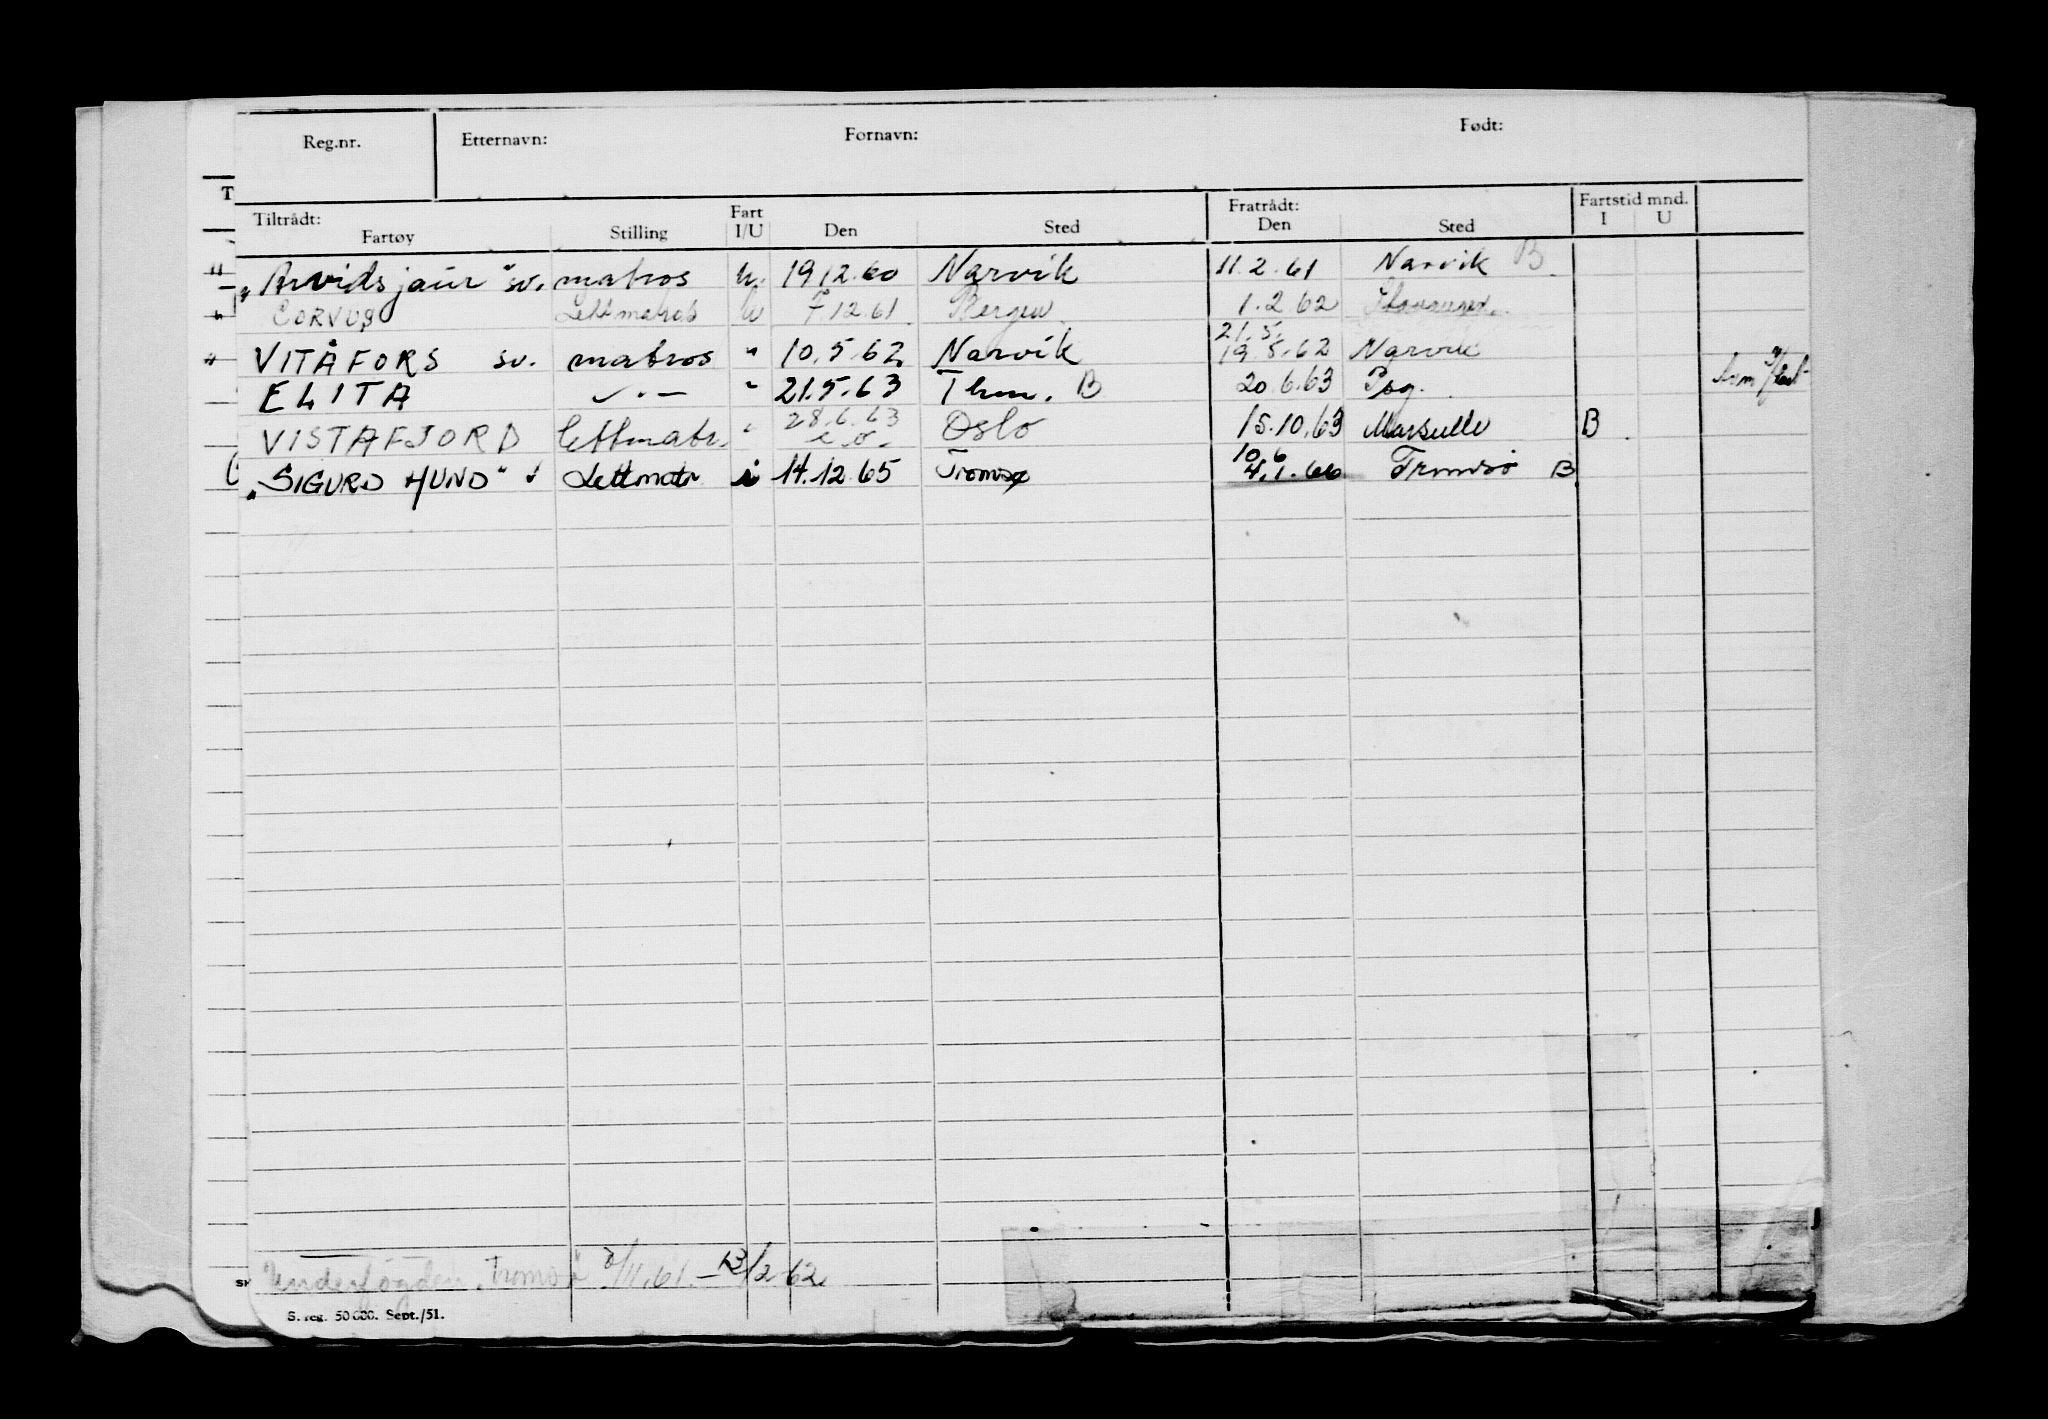 Reg.nr. Etternavn: Fornavn: Født:
T
Tiltrådt: Fratrådt: Fartstid mnd.
Fartøy Stilling Fart I/U Den Sted Den Sted I U
"Arvidsjaur" sv. matros u. 19 12.60 Narvik 11.2.61 Narvik B
CORVUS Lettmatros u 7 12 61 Bergen 1.2 62
21.5.
VITÅFORS sv. matros " 10.5.62 Narvik 19.5.62 Narvik
ELITA —"— " 21.5.63 Thm. B 20.6.63 Psg.
VISTAFJORD lettmatr. " 28.6.63 Oslo 15.10.63 Marseille B
10.6
"SIGURD HUND" Lettmatr i 14.12.65 Tromsø 4.1.66 Tromsø B
Underfogden, Tromsø 3/11.61 – 13/2 62
S. reg. 50 000. Sept./51.